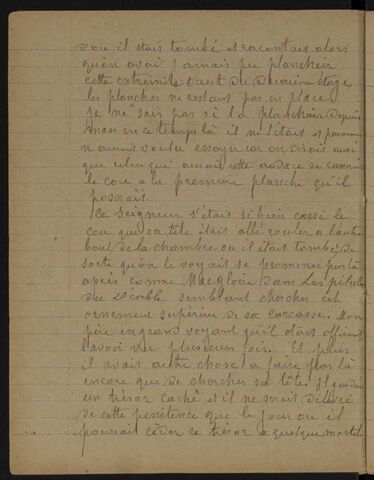 d'ou il était tombé et racontait alors
qu'on avait jamais pu planchéir
cette extrémité ouest du deuxième étage
les planches ne restant pas en place.
Je ne sais pas si l'a planchéier depuis
mais en ce temps là il ne l'était et personne
n'aurait voulu essayer car on disait aussi
que celui qui aurait cette audace se casserait
le cou a la première planche qu'il
poserait.
Ce seigneur s'était si bien cassé le
cou que sa tête était allé rouler a l'autre
bout de la chambre ou il était tombé de
sorte qu'on le voyait se promener par là
après comme Mac Gloire dans Les pilules
du diable semblant chercher cet
ornement supérieur de sa carcasse. Mon
père en grand voyant qu'il était affirmait
l'avoir vu plusieurs fois. Et puis
il avait autre chose a faire par là
encore que de chercher sa tête. Il gardait
un trésor caché et il ne serait délivré
de cette penitence que le jour ou il
pourrait céder ce trésor a quelque mortel